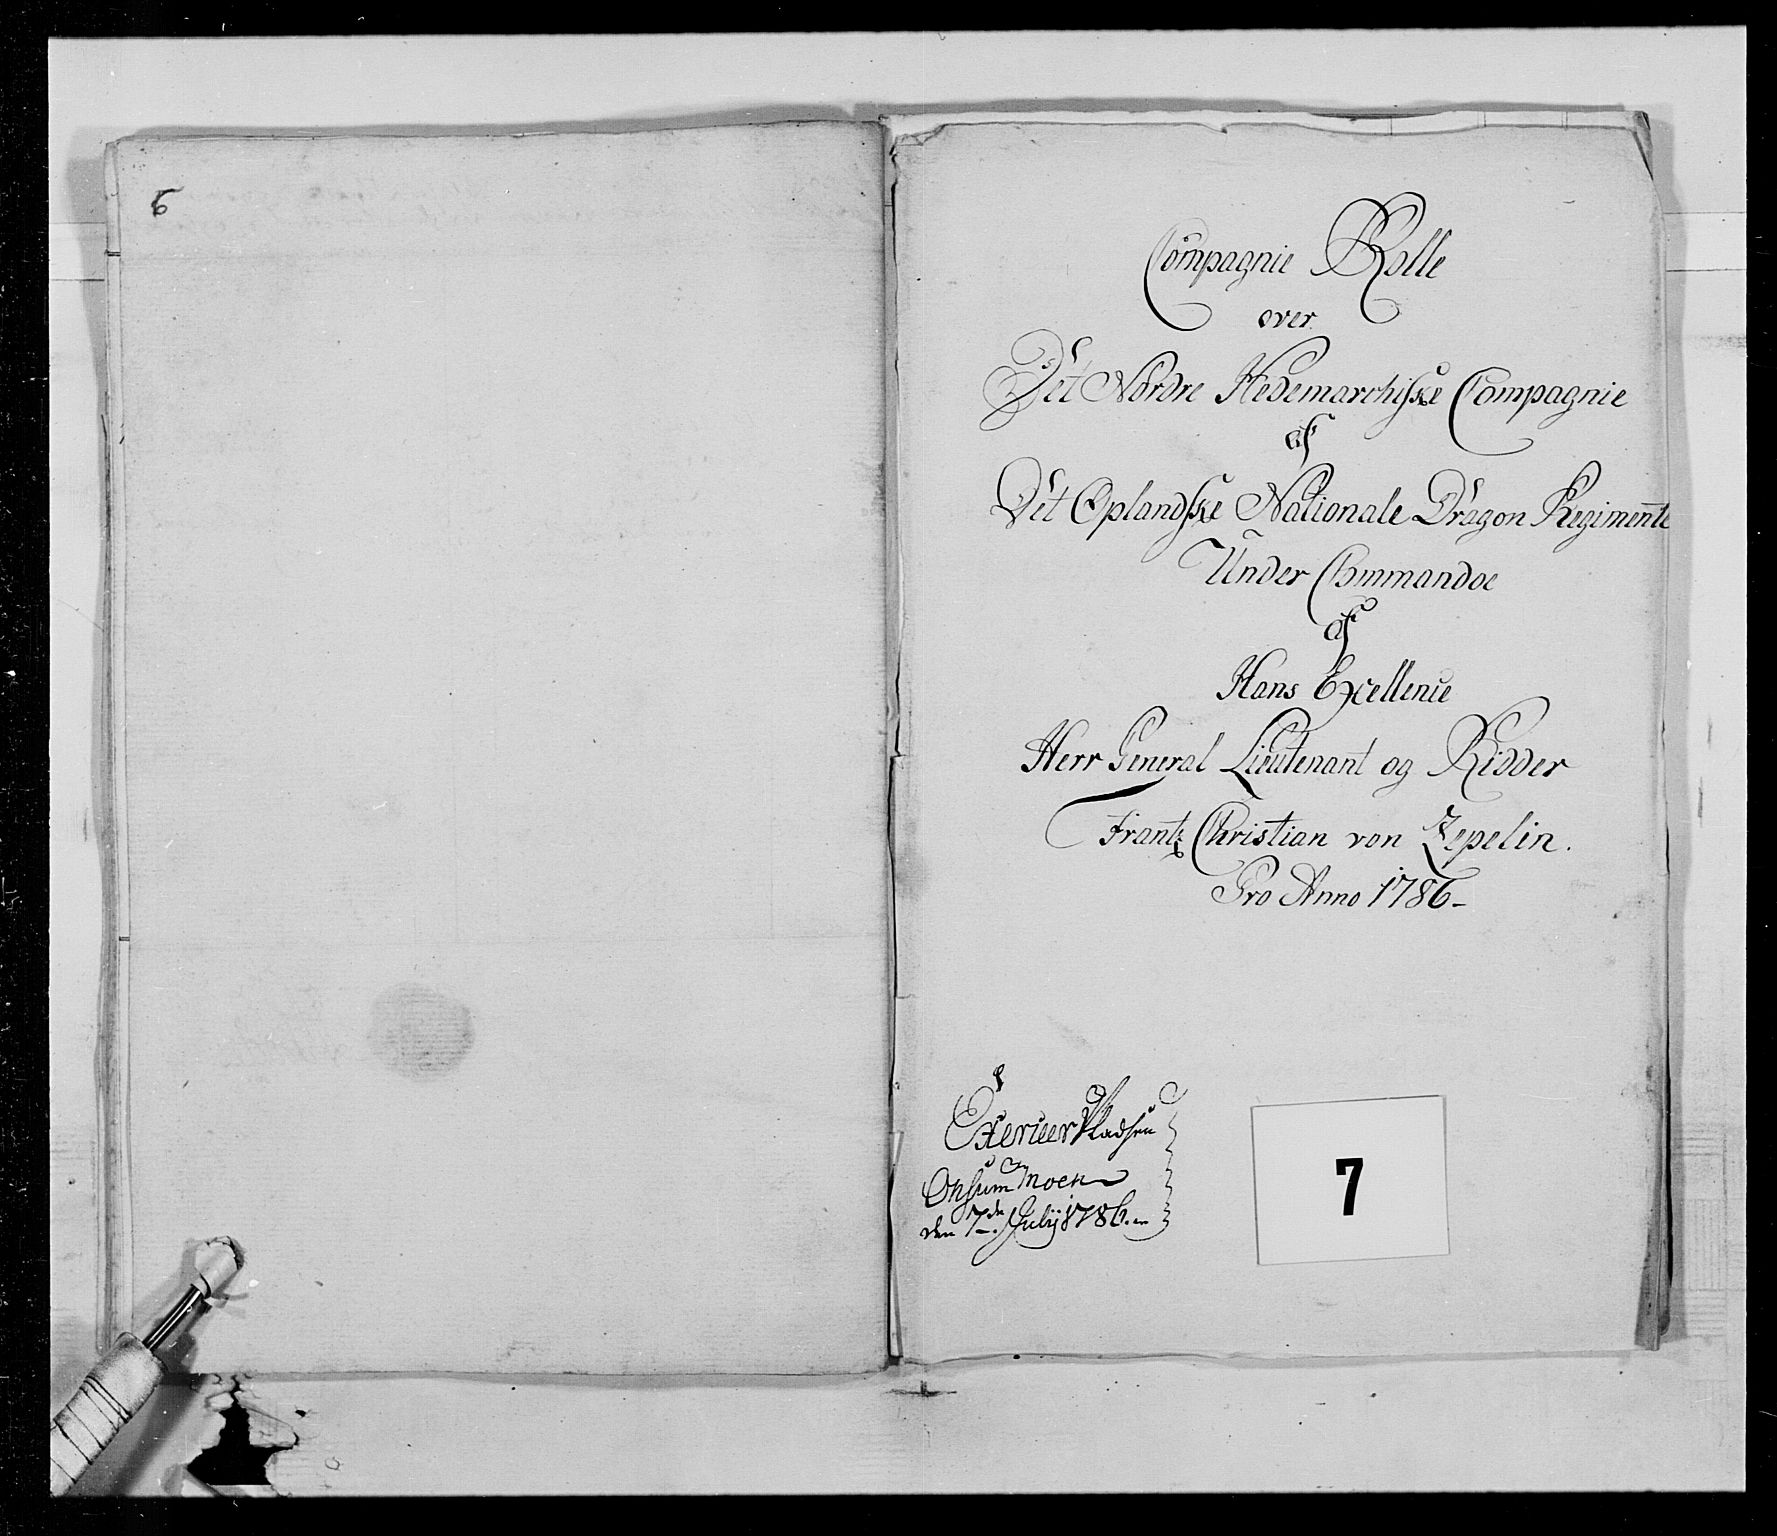 6
Compagnie Rolle
over
Det Nordre Hedemarchiske Compagnie
af
Det Oplandske Nationale Dragon Regimente
Under Commandoe
af
Hans Excellence
Herr General Lieutenant og Ridder
Frantz Christian von Zepelin.
Pro Anno 1786-
Exerceer Pladsen
Onsum Moen
den 7de July 1786.
7